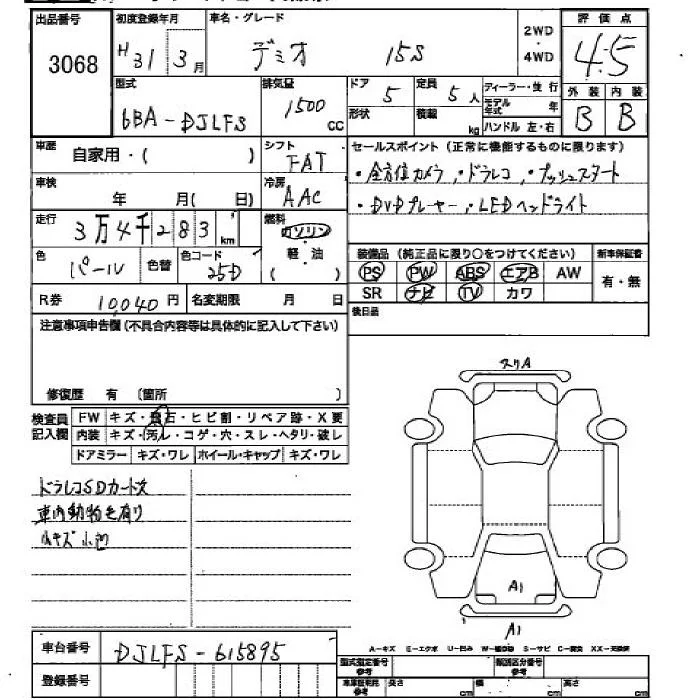 出品番号 初度登録年月 車名・グレード 評価点
3068 H31 3月 デミオ 15S 2WD ・ 4WD 4.5
型式 排気量 ドア 定員 ディーラー・並行 外装 内装
6BA-DJLFS 1500 CC 5 5人 モデル年式 年 B B
形状 積載 kg ハンドル 左・右
車歴 自家用・( ) シフト FAT セールスポイント(正常に機能するものに限ります)
車検 年 月( 日) 冷房 AAC ・全方位カメラ,・ドラレコ,・プッシュスタート
走行 3万4千283km 燃料 ガソリン ・DVDプレーヤー,・LEDヘッドライト
色 パール 色替 色コード 25D 軽・油 ( ) 装備品(純正品に限り○をつけてください) 新車保証書
PS PW ABS エアB AW 有・無
R券 10,040円 名変期限 月 日 SR ナビ TV カワ
注意事項申告欄(不具合内容等は具体的に記入して下さい) 後日品
修復歴 有 (箇所 )
スリA
検査員記入欄 FW キズ・飛石・ヒビ割・リペア跡・X要
内装 キズ・汚レ・コゲ・穴・スレ・ヘタリ・破レ
ドアミラー キズ・ワレ ホイール・キャップ キズ・ワレ
ドラレコSDカード欠
車内動物毛有り
小キズ小凹
A1
A1
車台番号 DJLFS-615895
A-キズ E-エクボ U-凹み S-サビ C-腐食 XX-交換済
登録番号 型式指定番号 参考 類別区分番号 参考
長さ cm 幅 cm 高さ cm